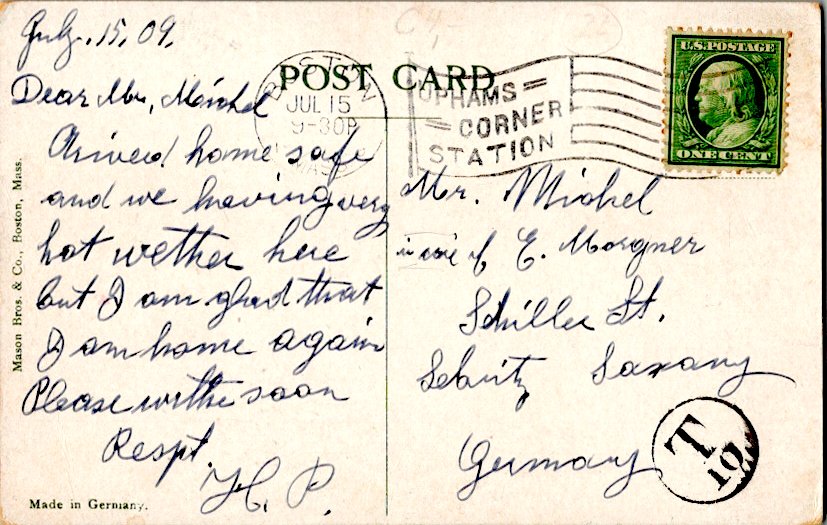 July. 15, 09.
POST CARD
BOSTON
JUL 15
9-30P
MASS
UPHAMS
CORNER
STATION
U.S. POSTAGE
ONE CENT
Dear Mr. Michel
Arived home safe
and we having very
hot wether here
but I am glad that
I am home again
Please writhe soon
Respt.
H. P.
Mr. Michel
in care of E. Morgner
Schiller St.
Sebnitz Saxany
Germany
T
10
Mason Bros. & Co., Boston, Mass.
Made in Germany.